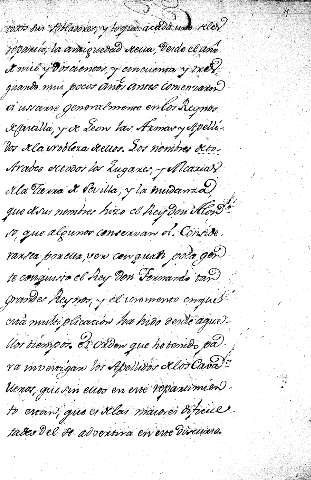 todos sus Pobladores, y lo que a cada uno se les
repartio, la antiguedad de ella, desde el año
de mil y Doscientos, y cincuenta y tres,
quando muy pocos años antes comenzaron
a usarse generalmente en los Reynos
de Castilla, y de Leon las Armas y Apelli-
dos de la nobleza de ellos. Los nombres de
de todos los Lugares, y Alcarias
de la tierra de Sevilla, y la mudanza
que de sus nombres hizo el Rey Don Alon-
so que algunos conservan oi. Conside-
rarse por ella, ver con quan poca gen-
te conquisto el Rey Don Fernando tan
grandes Reynos, y el inmenso
multiplicacion ha ido desde aque-
llos tiempos. El orden que ha tenido pa-
ra investigar los Apellidos de los Cava-
lleros, que sin ellos en este repartimien-
to estan, que es de las maiores dificul-
tades del se advertira en este discurso.